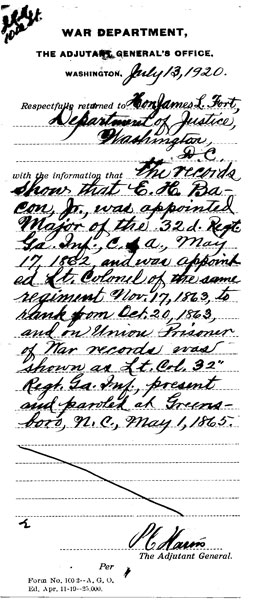 WAR DEPARTMENT,
THE ADJUTANT GENERAL'S OFFICE,
WASHINGTON, July 13, 1920.
Respectfully returned to Hon James L. Fort,
Department of Justice,
Washington,
D.C.,
with the information that the records
show that E. H. Ba-
con, Jr., was appointed
Major of the 32d Regt.
Ga. Inf., C.S.A., May
17, 1862, and was appoint
ed Lt. Colonel of the same
regiment Nov. 17, 1863, to
rank from Oct. 20, 1863,
and on Union Prisoner
of War records was
shown as Lt. Col. 32"
Regt. Ga. Inf., present
and paroled at Greens-
boro, N.C., May 1, 1865.
P C Harris
The Adjutant General.
Per
Form No. 100 3—A. G. O.
Ed. Apr. 11-19—25,000.